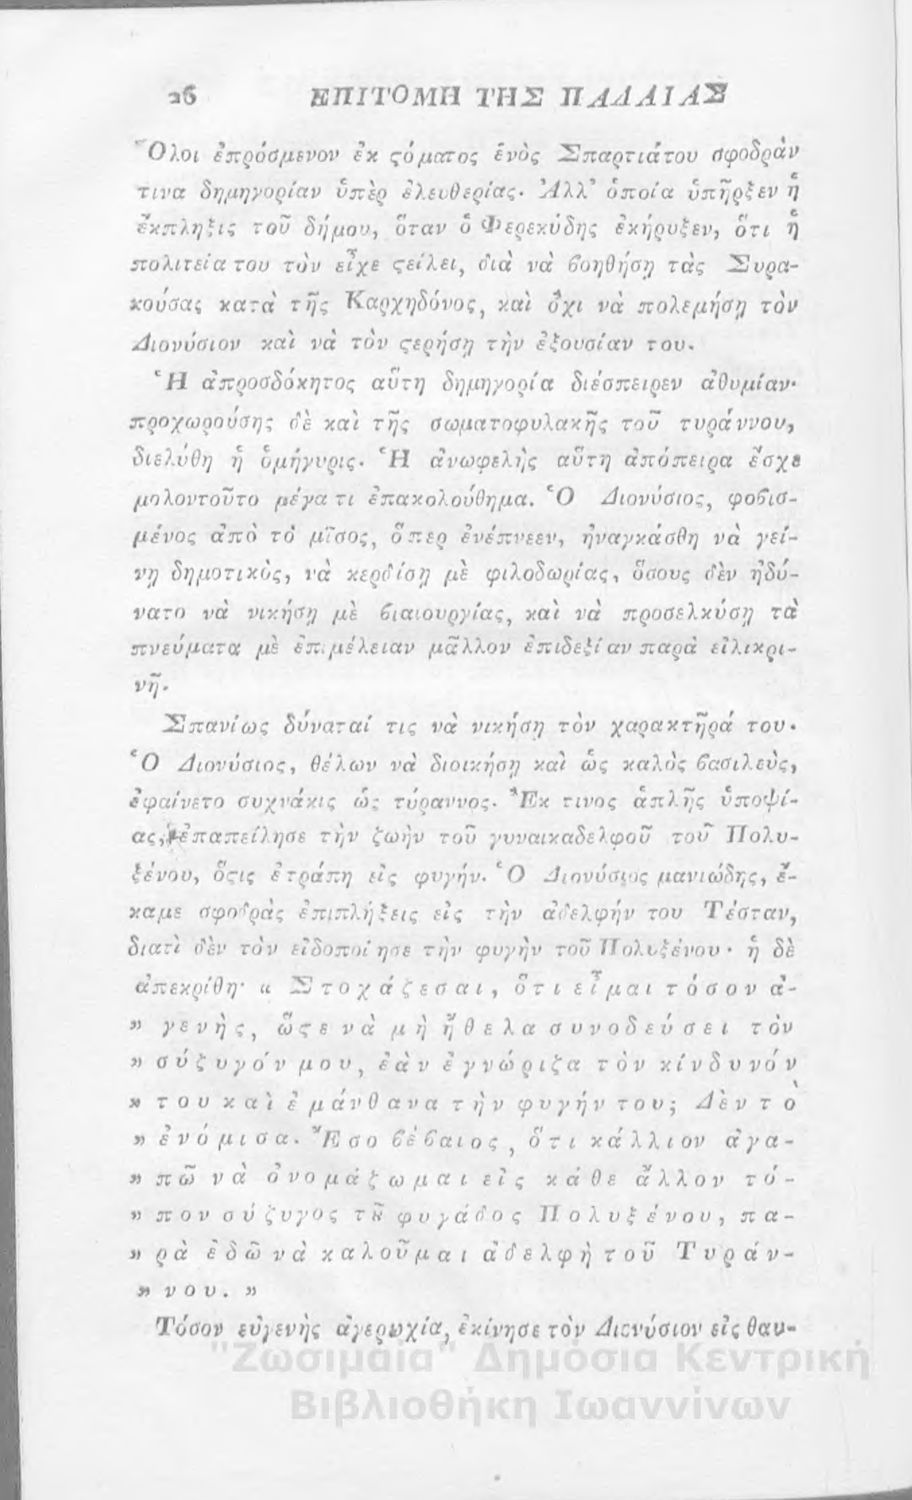 26 ΕΠΙΤΟΜΗ ΤΗΣ ΠΑΛΑΙΑΣ
Ὅλοι ἐπρόσμενον ἐκ ϛόματος ἑνὸς Σπαρτιάτου σφοδρὰν
τινα δημηγορίαν ὑπὲρ ἐλευθερίας· Ἀλλ' ὁποία ὑπῆρξεν ἡ
ἔκπληξις τοῦ δήμου, ὅταν ὁ Φερεκύδης ἐκήρυξεν, ὅτι ἡ
πολιτεία του τὸν εἶχε ϛείλει, διὰ νὰ βοηθήσῃ τὰς Συρα-
κούσας κατὰ τῆς Καρχηδόνος, καὶ ὄχι νὰ πολεμήσῃ τὸν
Διονύσιον καὶ νὰ τὸν ϛερήσῃ τὴν ἐξουσίαν του.
Ἡ ἀπροσδόκητος αὕτη δημηγορία διέσπειρεν ἀθυμίαν·
προχωρούσης δὲ καὶ τῆς σωματοφυλακῆς τοῦ τυράννου,
διελύθη ἡ ὁμήγυρις. Ἡ ἀνωφελὴς αὕτη ἀπόπειρα ἔσχε
μολοντοῦτο μέγα τι ἐπακολούθημα. Ὁ Διονύσιος, φοβισ-
μένος ἀπὸ τὸ μῖσος, ὅπερ ἐνέπνεεν, ἠναγκάσθη νὰ γεί-
νῃ δημοτικὸς, νὰ κερδίσῃ μὲ φιλοδωρίας, ὅσους δὲν ἠδύ-
νατο νὰ νικήσῃ μὲ βιαιουργίας, καὶ νὰ προσελκύσῃ τὰ
πνεύματα μὲ ἐπιμέλειαν μᾶλλον ἐπιδεξίαν παρὰ εἰλικρι-
νῆ.
Σπανίως δύναταί τις νὰ νικήσῃ τὸν χαρακτῆρά του·
Ὁ Διονύσιος, θέλων νὰ διοικήσῃ καὶ ὡς καλὸς βασιλεὺς,
ἐφαίνετο συχνάκις ὡς τύραννος. Ἔκ τινος ἁπλῆς ὑποψί-
ας, ἐπαπείλησε τὴν ζωὴν τοῦ γυναικαδελφοῦ του Πολυ-
ξένου, ὅϛις ἐτράπη εἰς φυγήν. Ὁ Διονύσιος μανιώδης, ἔ-
καμε σφοδρὰς ἐπιπλήξεις εἰς τὴν ἀδελφήν του Τέσταν,
διατὶ δὲν τὸν εἰδοποίησε τὴν φυγὴν τοῦ Πολυξένου· ἡ δὲ
ἀπεκρίθη· « Στοχάζεσαι, ὅτι εἶμαι τόσον ἀ-
» γενὴς, ὥϛε νὰ μὴ ἤθελα συνοδεύσει τὸν
» σύζυγόν μου, ἐὰν ἐγνώριζα τὸν κίνδυνόν
» του καὶ ἐμάνθανα τὴν φυγήν του; Δὲν τὸ
» ἐνόμισα. Ἔσο βέβαιος, ὅτι κάλλιον ἀγα-
» πῶ νὰ ὀνομάζωμαι εἰς κάθε ἄλλον τό-
» πον σύζυγος τȣ͂ φυγάδος Πολυξένου, πα-
» ρὰ ἐδῶ νὰ καλοῦμαι ἀδελφὴ τοῦ Τυράν-
» νου. »
Τόσον εὐγενὴς ἀγερωχία, ἐκίνησε τὸν Διονύσιον εἰς θαυ-
"Ζωσιμαία" Δημόσια Κεντρική
Βιβλιοθήκη Ιωαννίνων